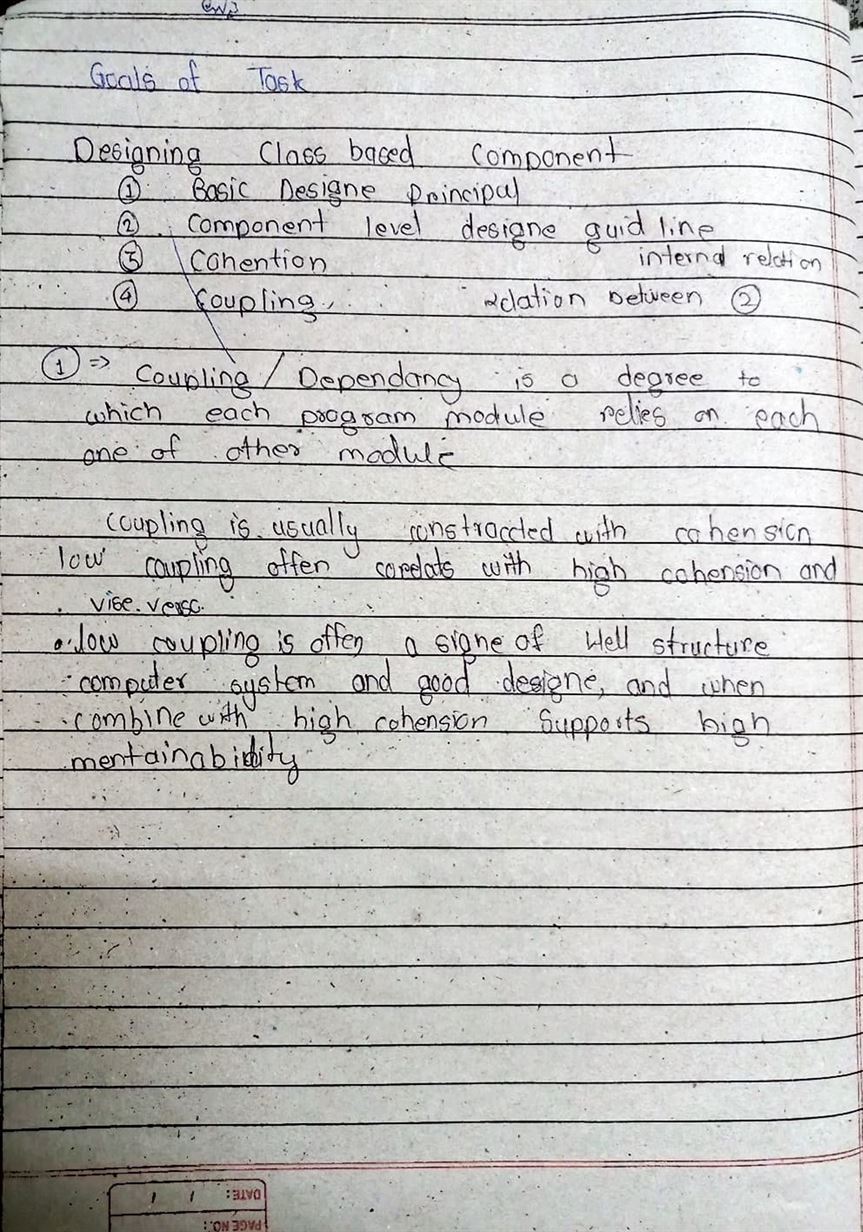 Goals of Task
Designing Class based Component
① Basic Designe Principal
② Component level designe guid line
③ Cohention internal relation
④ Coupling, relation between ②
① => Coupling / Dependancy is a degree to
which each program module relies on each
one of other module
Coupling is usually constracded with cohension
low coupling offen corelats with high cohension and
vise.versa.
• low coupling is offen a signe of Well structure
computer system and good designe, and when
combine with high cohension Supports high
mentainabidity
DATE: / /
PAGE NO.: